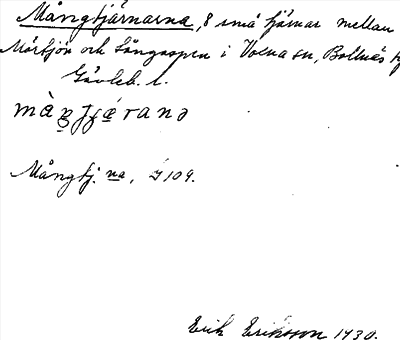 Mångtjärnarna, 8 små tjärnar mellan
Mörtsjön och Långaspen i Voxna sn, Bollnäs
Gävleb. l.
Mångtj. na, J 109.
Erik Eriksson 1930.